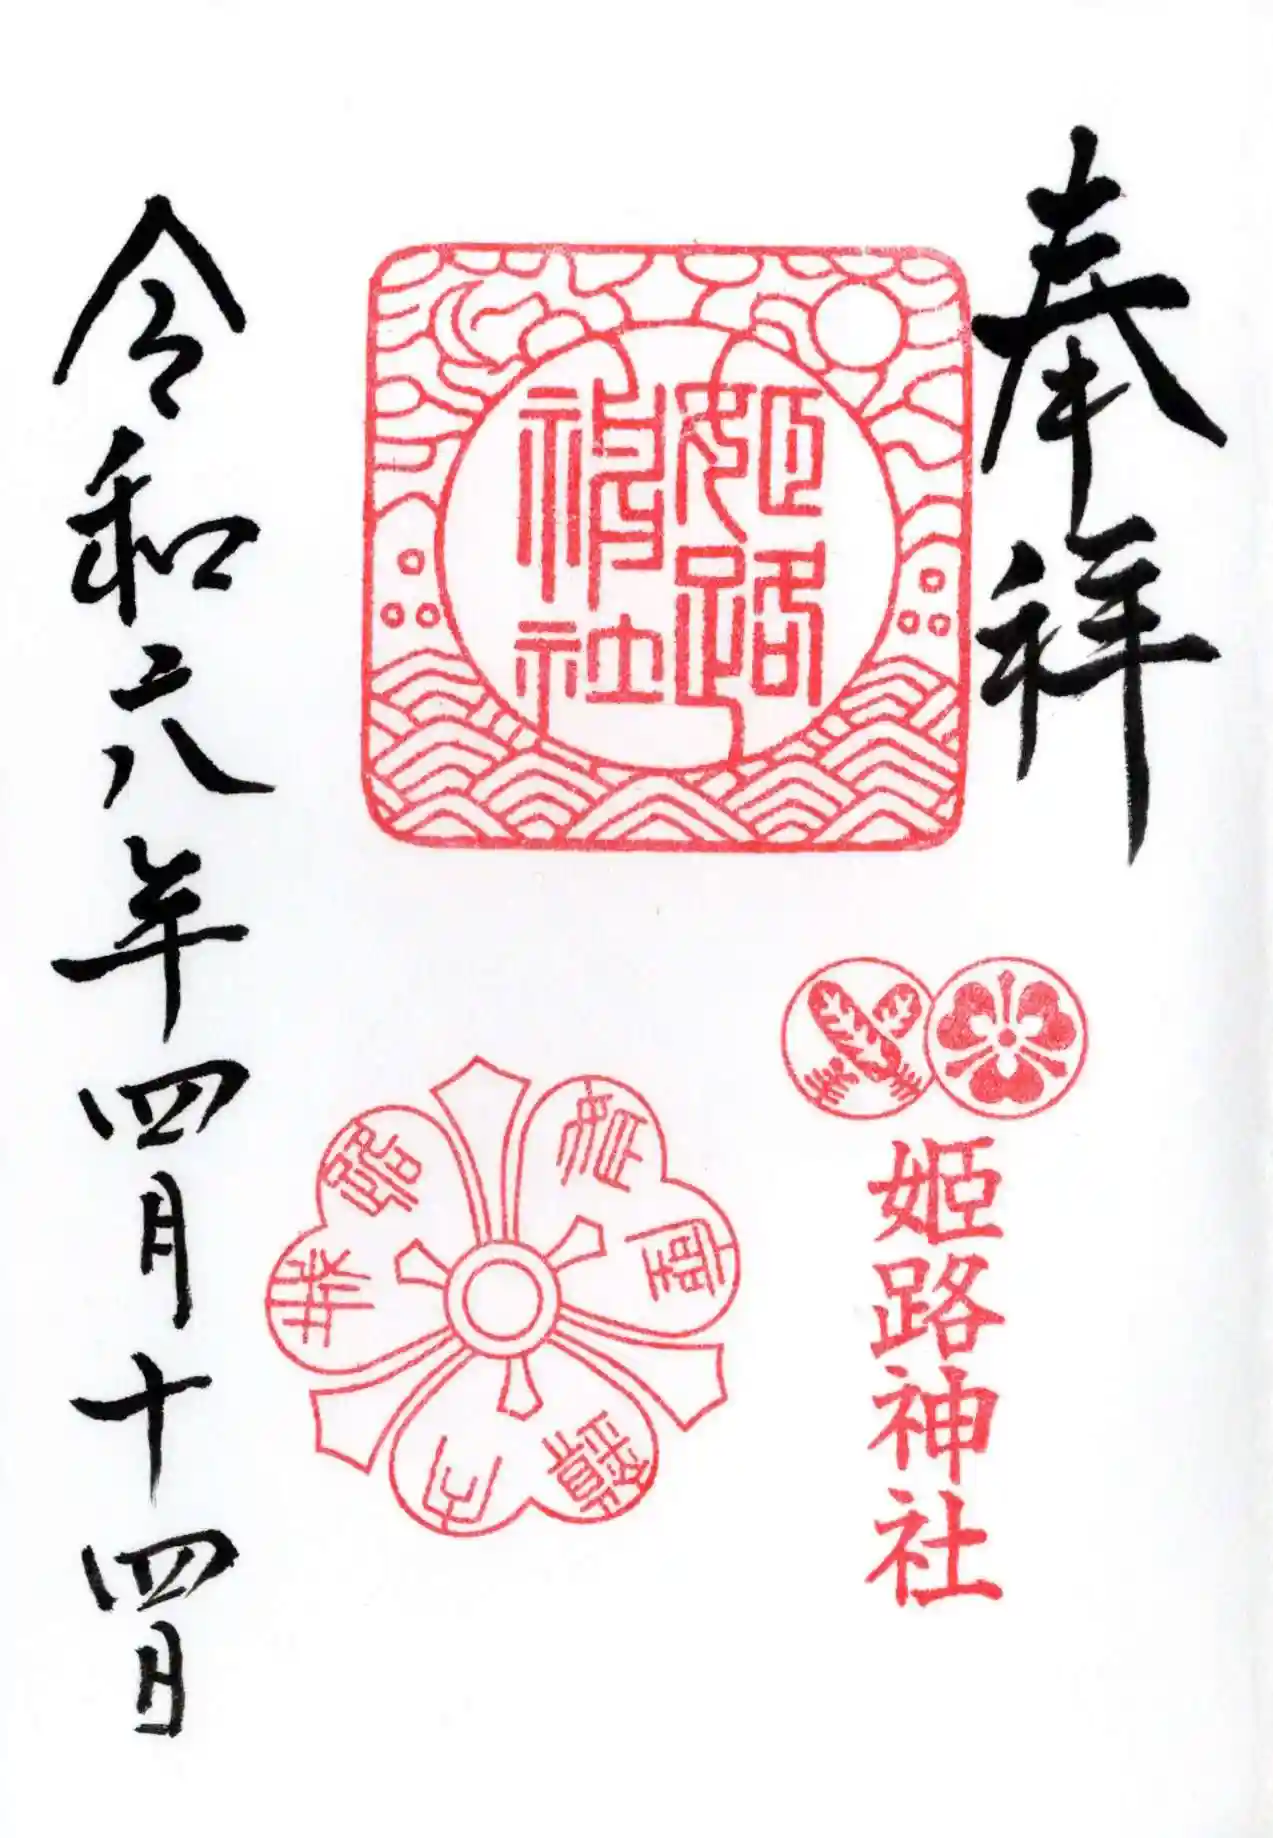 奉拝
姫路
神社
姫路神社
令和六年四月十四日